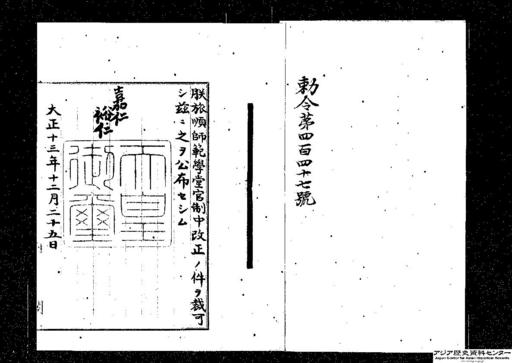 勅令第四百四十七號
朕旅順師範學堂官制中改正ノ件ヲ裁可
シ茲ニ之ヲ公布セシム
嘉仁
裕仁
天皇御璽
大正十三年十二月二十五日
アジア歴史資料センター
Japan Center for Asian Historical Records